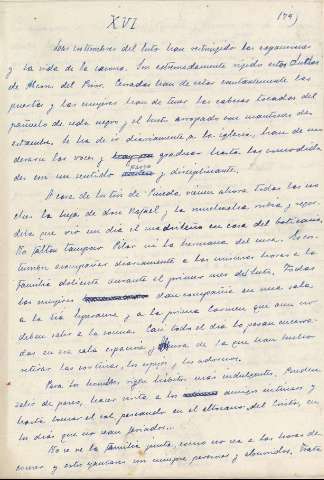 XVI
(79)
Las costumbres del luto han restringido las expansiones
y la vida de la casona. Son extremadamente rígidos estos lutos
de Alcorz del Pinar. Cerradas han de estar constantemente las
puertas y las mujeres han de tener las cabezas tocadas del
pañuelo de seda negro y el busto arropado con mantones de
estambre. Se ha de ir diariamente a la iglesia, han de mo-
derarse las voces y graduar hasta las comodida-
des con un sentido parco y disciplinante.
A casa de los tíos de Pineda vienen ahora todas las no-
ches la hija de don Rafael, la muchacha rubia y espon-
dida que vió un día el madrileño en casa del boticario.
No faltan tampoco Pilar ni la hermana del cura. Es cos-
tumbre acompañar diariamente a las mismas horas a la
familia doliente durante el primer mes del luto. Todas
las mujeres dan compañía en una sala
a la tía y a la prima Carmen que aun no
deben salir a la cocina. Casi todo el día lo pasan encerra-
das en esa sala espaciosa y de la que han hecho
retirar las cortinas, los espejos y los adornos.
Para los hombres rigen hábitos más indulgentes. Pueden
salir de paseo, hacer visita a los amigos íntimos y
hasta tomar el sol paseando en el altozano del Cristo, en
los días que no sean feriados...
No se ve la familia junta, como no sea a las horas de
comer y estos yantares son siempre parcos y silenciosos. Trata